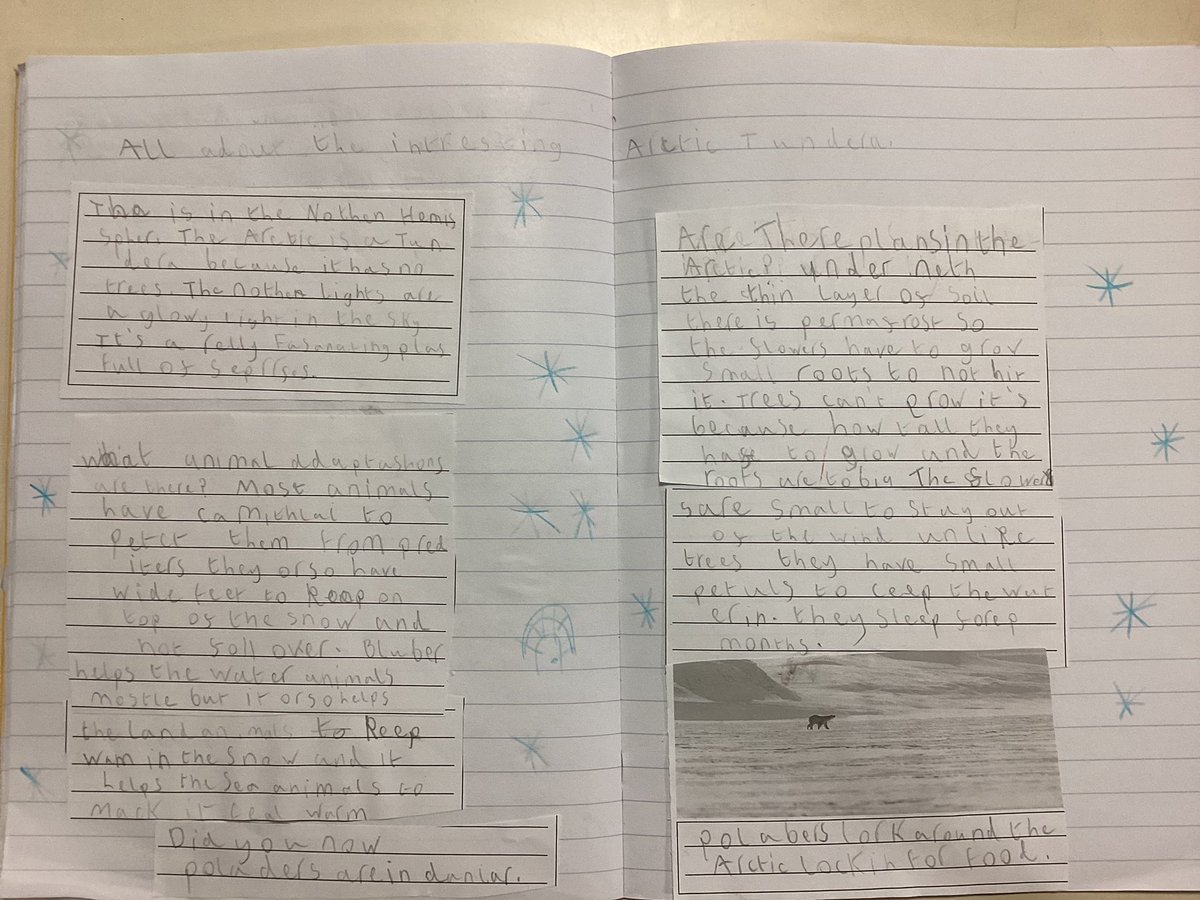 All adout the intresting Arctic Tundera.
Tha is in the Nothen Hemis
spher. The Arctic is a Tun
dera because it has no
trees. The nothen Lights are
a glowy light in the sky
It's a relly Fasanating plas
full of seprises.
What animal adaptashons
are there? Most animals
have camithlal to
petct them from pred
iters they orso have
wide feet to keep on
top of the snow and
not foll over. Bluber
helps the water animals
mostle but it orso helps
the land animals to keep
wam in the snow and it
helps the sea animals to
mack it feal warm
Did you now
poladers are in danjar.
Are There plans in the
Arctic? under neth
the thin layer of soil
there is permafrost so
the flowers have to grov
small roots to not hit
it. Trees can't grow it's
because how tall they
have to grow and the
roots are to big The flowers
are small to stay out
of the wind unlike
trees they have small
petuls to ceep the wat
er in. they sleep for
months.
polabers lork around the
Arctic lockin for food.